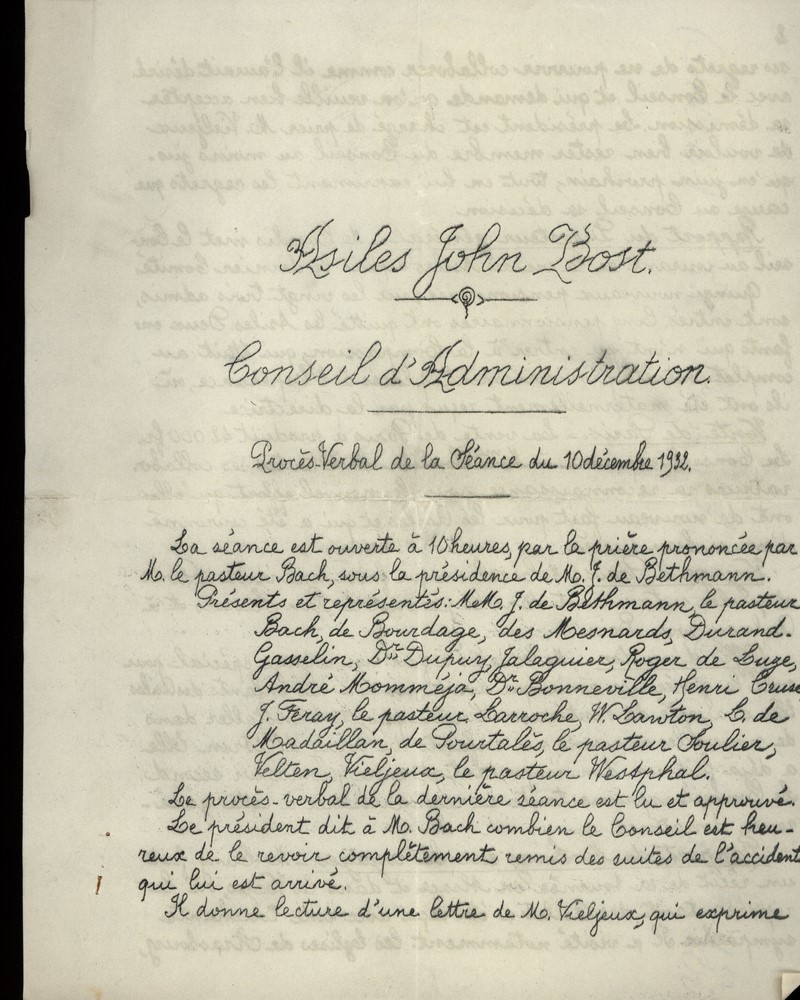 Asiles John Bost.
Conseil d'Administration.
Procès-Verbal de la Séance du 10 décembre 1932.
La séance est ouverte à 10 heures, par la prière prononcée par
M. le pasteur Bach, sous la présidence de M. J. de Bethmann.
Présents et représentés: M.M. J. de Bethmann, le pasteur
Bach, de Bourdage, des Mesnards, Durand-
Gasselin, Drs Dupuy, Jalaguier, Roger de Luze,
André Momméja, Dr Bonneville, Henri Cruse
J. Féray, le pasteur Larroche, W. Lawton, C. de
Madaillan, de Pourtalès, le pasteur Soulier,
Velten, Vieljeux, le pasteur Westphal.
Le procès-verbal de la dernière séance est lu et approuvé.
Le président dit à M. Bach combien le Conseil est heu-
reux de le revoir complètement remis des suites de l'accident
qui lui est arrivé.
Il donne lecture d'une lettre de M. Vieljeux, qui exprime